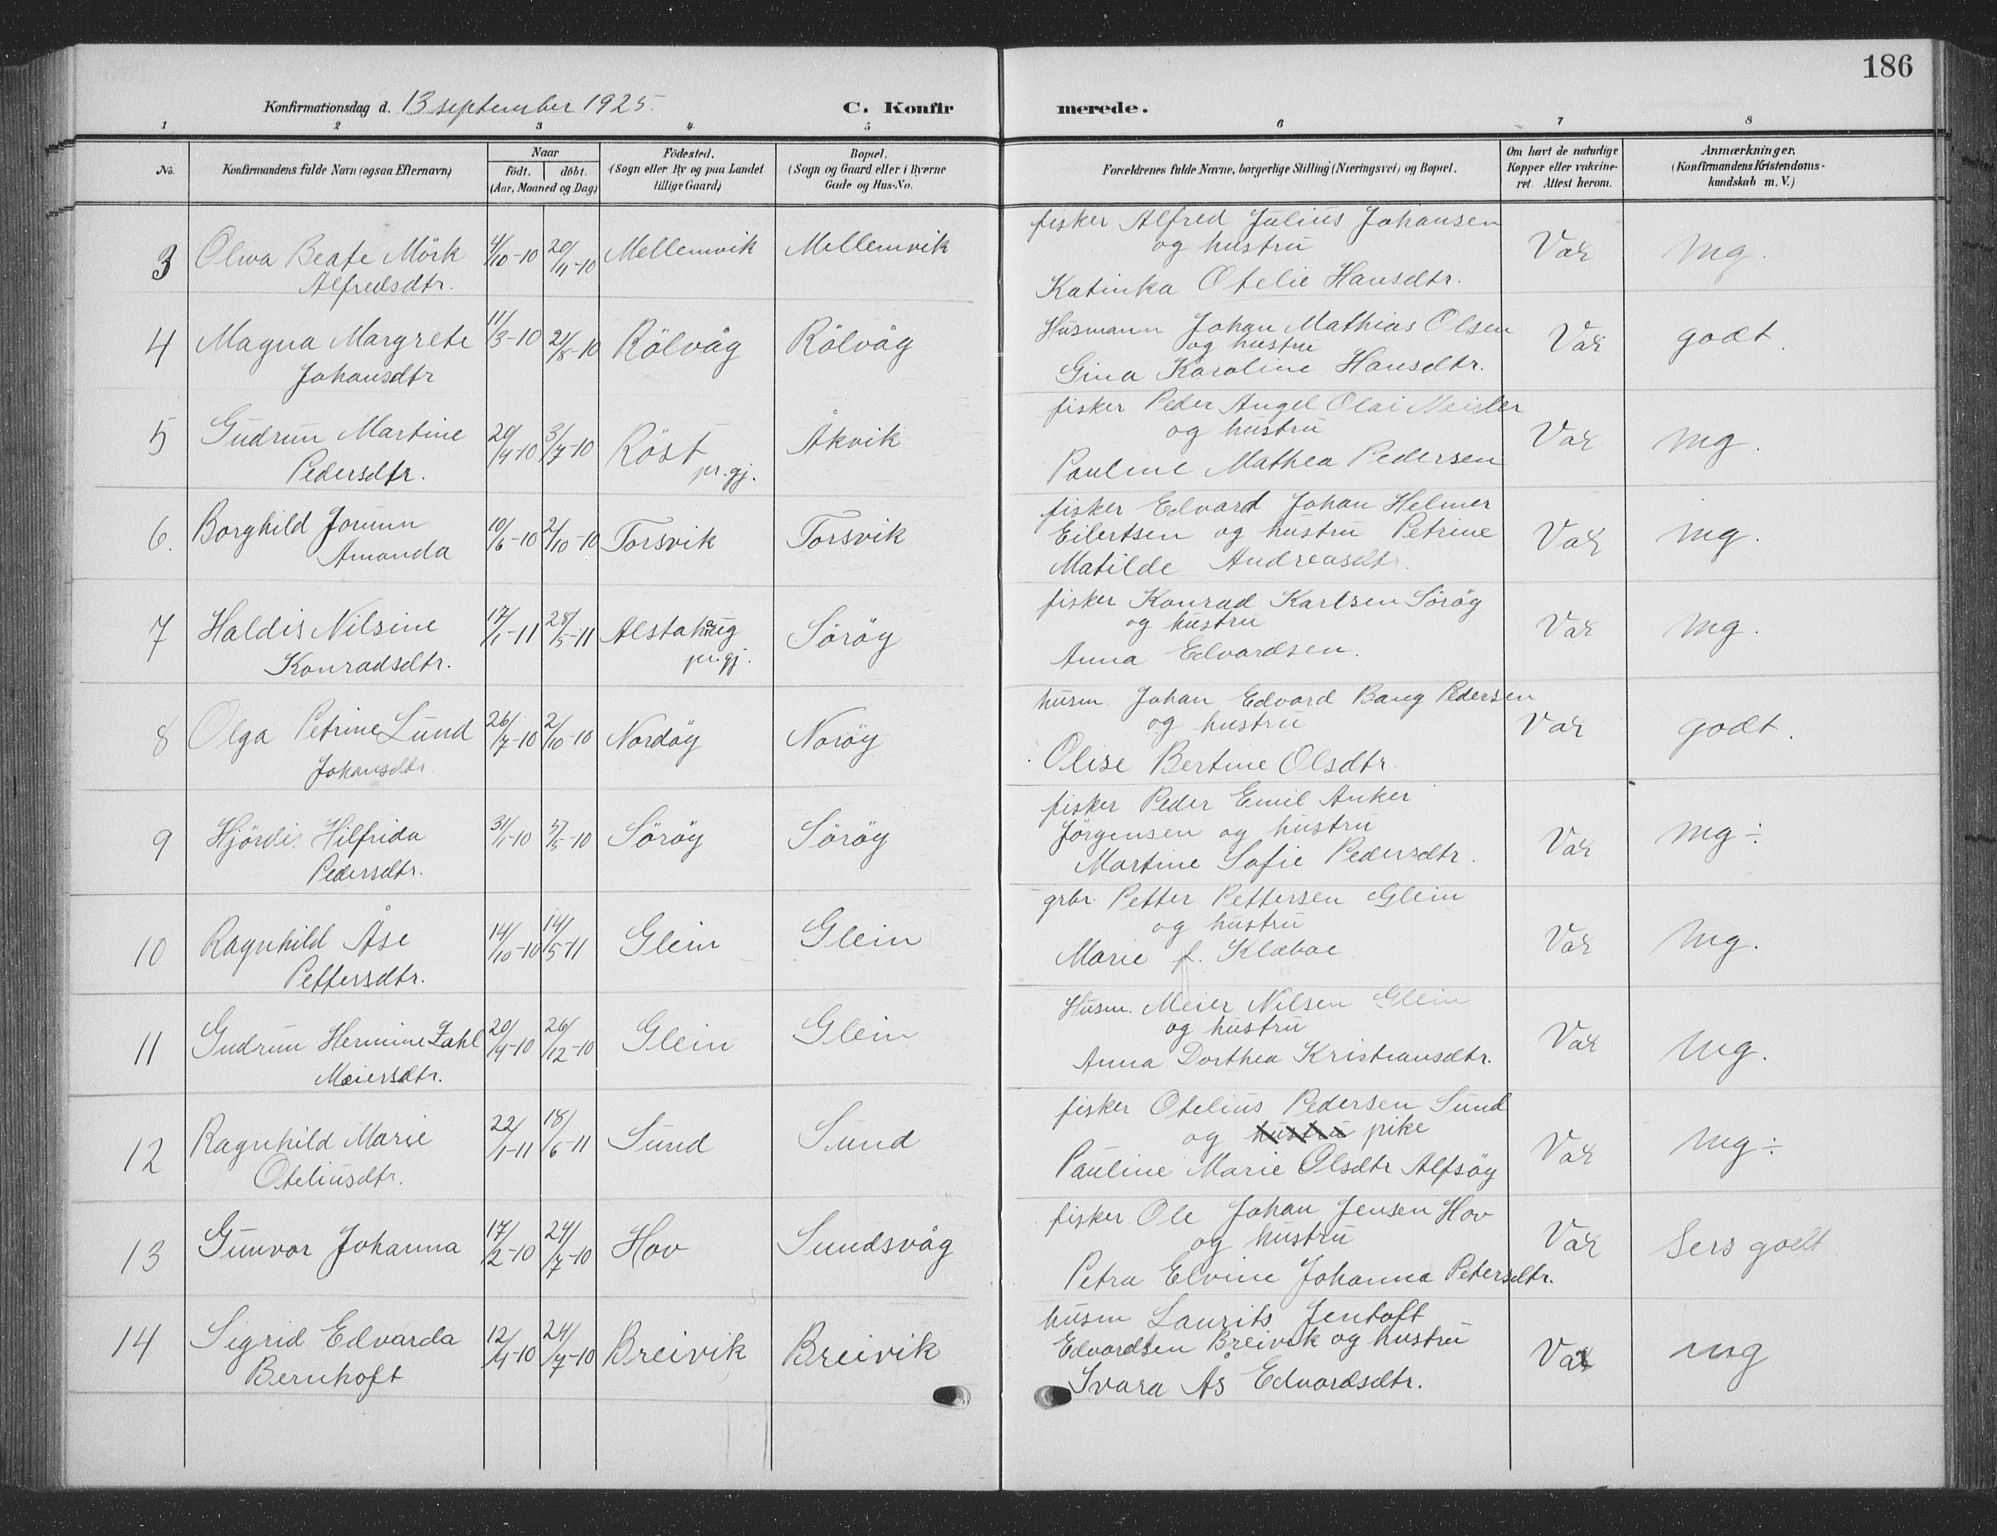 186
Konfirmationsdag d. 13 september 1925. C. Konfirmerede.
1 2 3 4 5 6 7 8
No. Konfirmandens fulde Navn (ogsaa Efternavn) Naar födt. döbt. (Aar, Maaned og Dag) Födested. (Sogn eller By og paa Landet tillige Gaard) Bopæl. (Sogn og Gaard eller i Byerne Gade og Hus-No. Forældrenes fulde Navne, borgerlige Stilling (Næringsvei) og Bopæl. Om havt de naturlige Kopper eller vakcineret. Attest herom. Anmærkninger. (Konfirmandens Kristendomskundskab m. V.)
3 Oliva Beate Mörk Alfredsdtr. 4/10-10 20/11-10 Mellemvik Mellemvik
fisker Alfred Julius Johansen
og hustru
Katinka Otelie Hansdtr. Vak mg.
4 Magna Margrete Johansdtr 11/3-10 21/8-10 Rölvåg Rölvåg
Husmann Johan Mathias Olsen
og hustru
Gina Karoline Hansdtr. Vak godt.
5 Gudrun Martine Pedersdtr. 20/4-10 3/7-10 Röst pr.gj. Åkvik
fisker Peder Angel Olai Meisler
og hustru
Pauline Mathea Pedersen Vak mg.
6. Borghild Jorunn Amanda 10/6-10 2/10-10 Torsvik Torsvik
fisker Edvard Johan Helmer
Eilertsen og hustru Petrine
Matilde Andreasdtr. Vak mg.
7 Haldis Nilsine Konradsdtr. 17/1-11 28/5-11 Alstahaug pr.gj. Söröy
fisker Konrad Karlsen Söröy
og hustru
Anna Edvardsen. Vak mg.
8 Olga Petrine Lund Johansdtr 26/7-10 2/10-10 Nordöy Noröy
husm. Johan Edvard Bang Pedersen
og hustru
Olise Bertine Olsdtr. Vak godt.
9 Hjördis Hilfrida Pedersdtr. 31/1-10 5/5-10 Söröy Söröy
fisker Peder Emil Anker
Jörgensen og hustru
Martine Sofie Pedersdtr. Vak mg ÷
10 Ragnhild Åse Pettersdtr. 14/10-10 14/5-11 Glein Glein
grbr. Petter Pettersen Glein
og hustru
Marie f. Klæboe. Vak mg.
11 Gudrun Hermine Zahl Meiersdtr. 20/9-10 26/12-10 Glein Glein
Husm. Meier Nilsen Glein
og hustru
Anna Dorthea Kristiansdtr. Vak mg.
12 Ragnhild Marie Oteliusdtr. 22/1-11 18/6-11 Sund Sund
fisker Otelius Pedersen Sund
og hustru pike
Pauline Marie Olsdtr Alfsöy Vak mg ÷
13 Gunvor Johanna 17/2-10 24/7-10 Hov Sundsvåg
fisker Ole Johan Jensen Hov
og hustru
Petra Elvine Johanna Petersdtr. Vak Sers godt
14 Sigrid Edvarda Bernhoft 12/4-10 24/7-10 Breivik Breivik
husm Laurits Jentoft
Edvardsen Breivik og hustru
Svara Ås Edvardsdtr. Vak mg